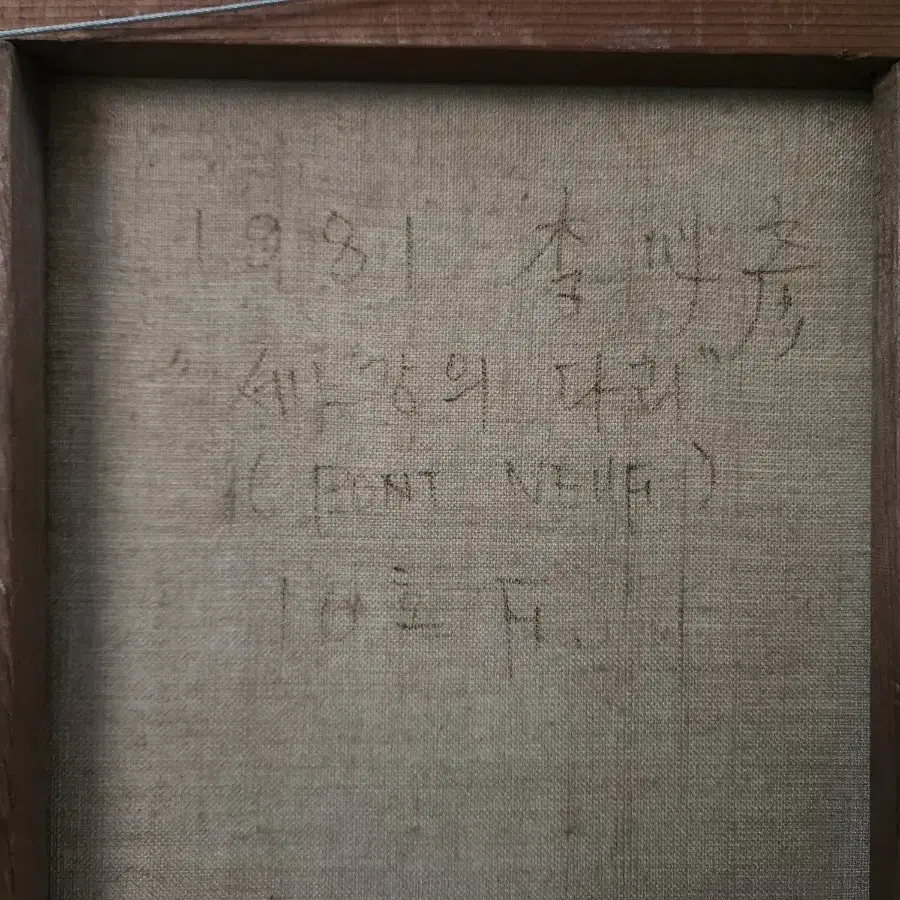 1981 李
"세느강의 다리"
(PONT NEUF)
10호